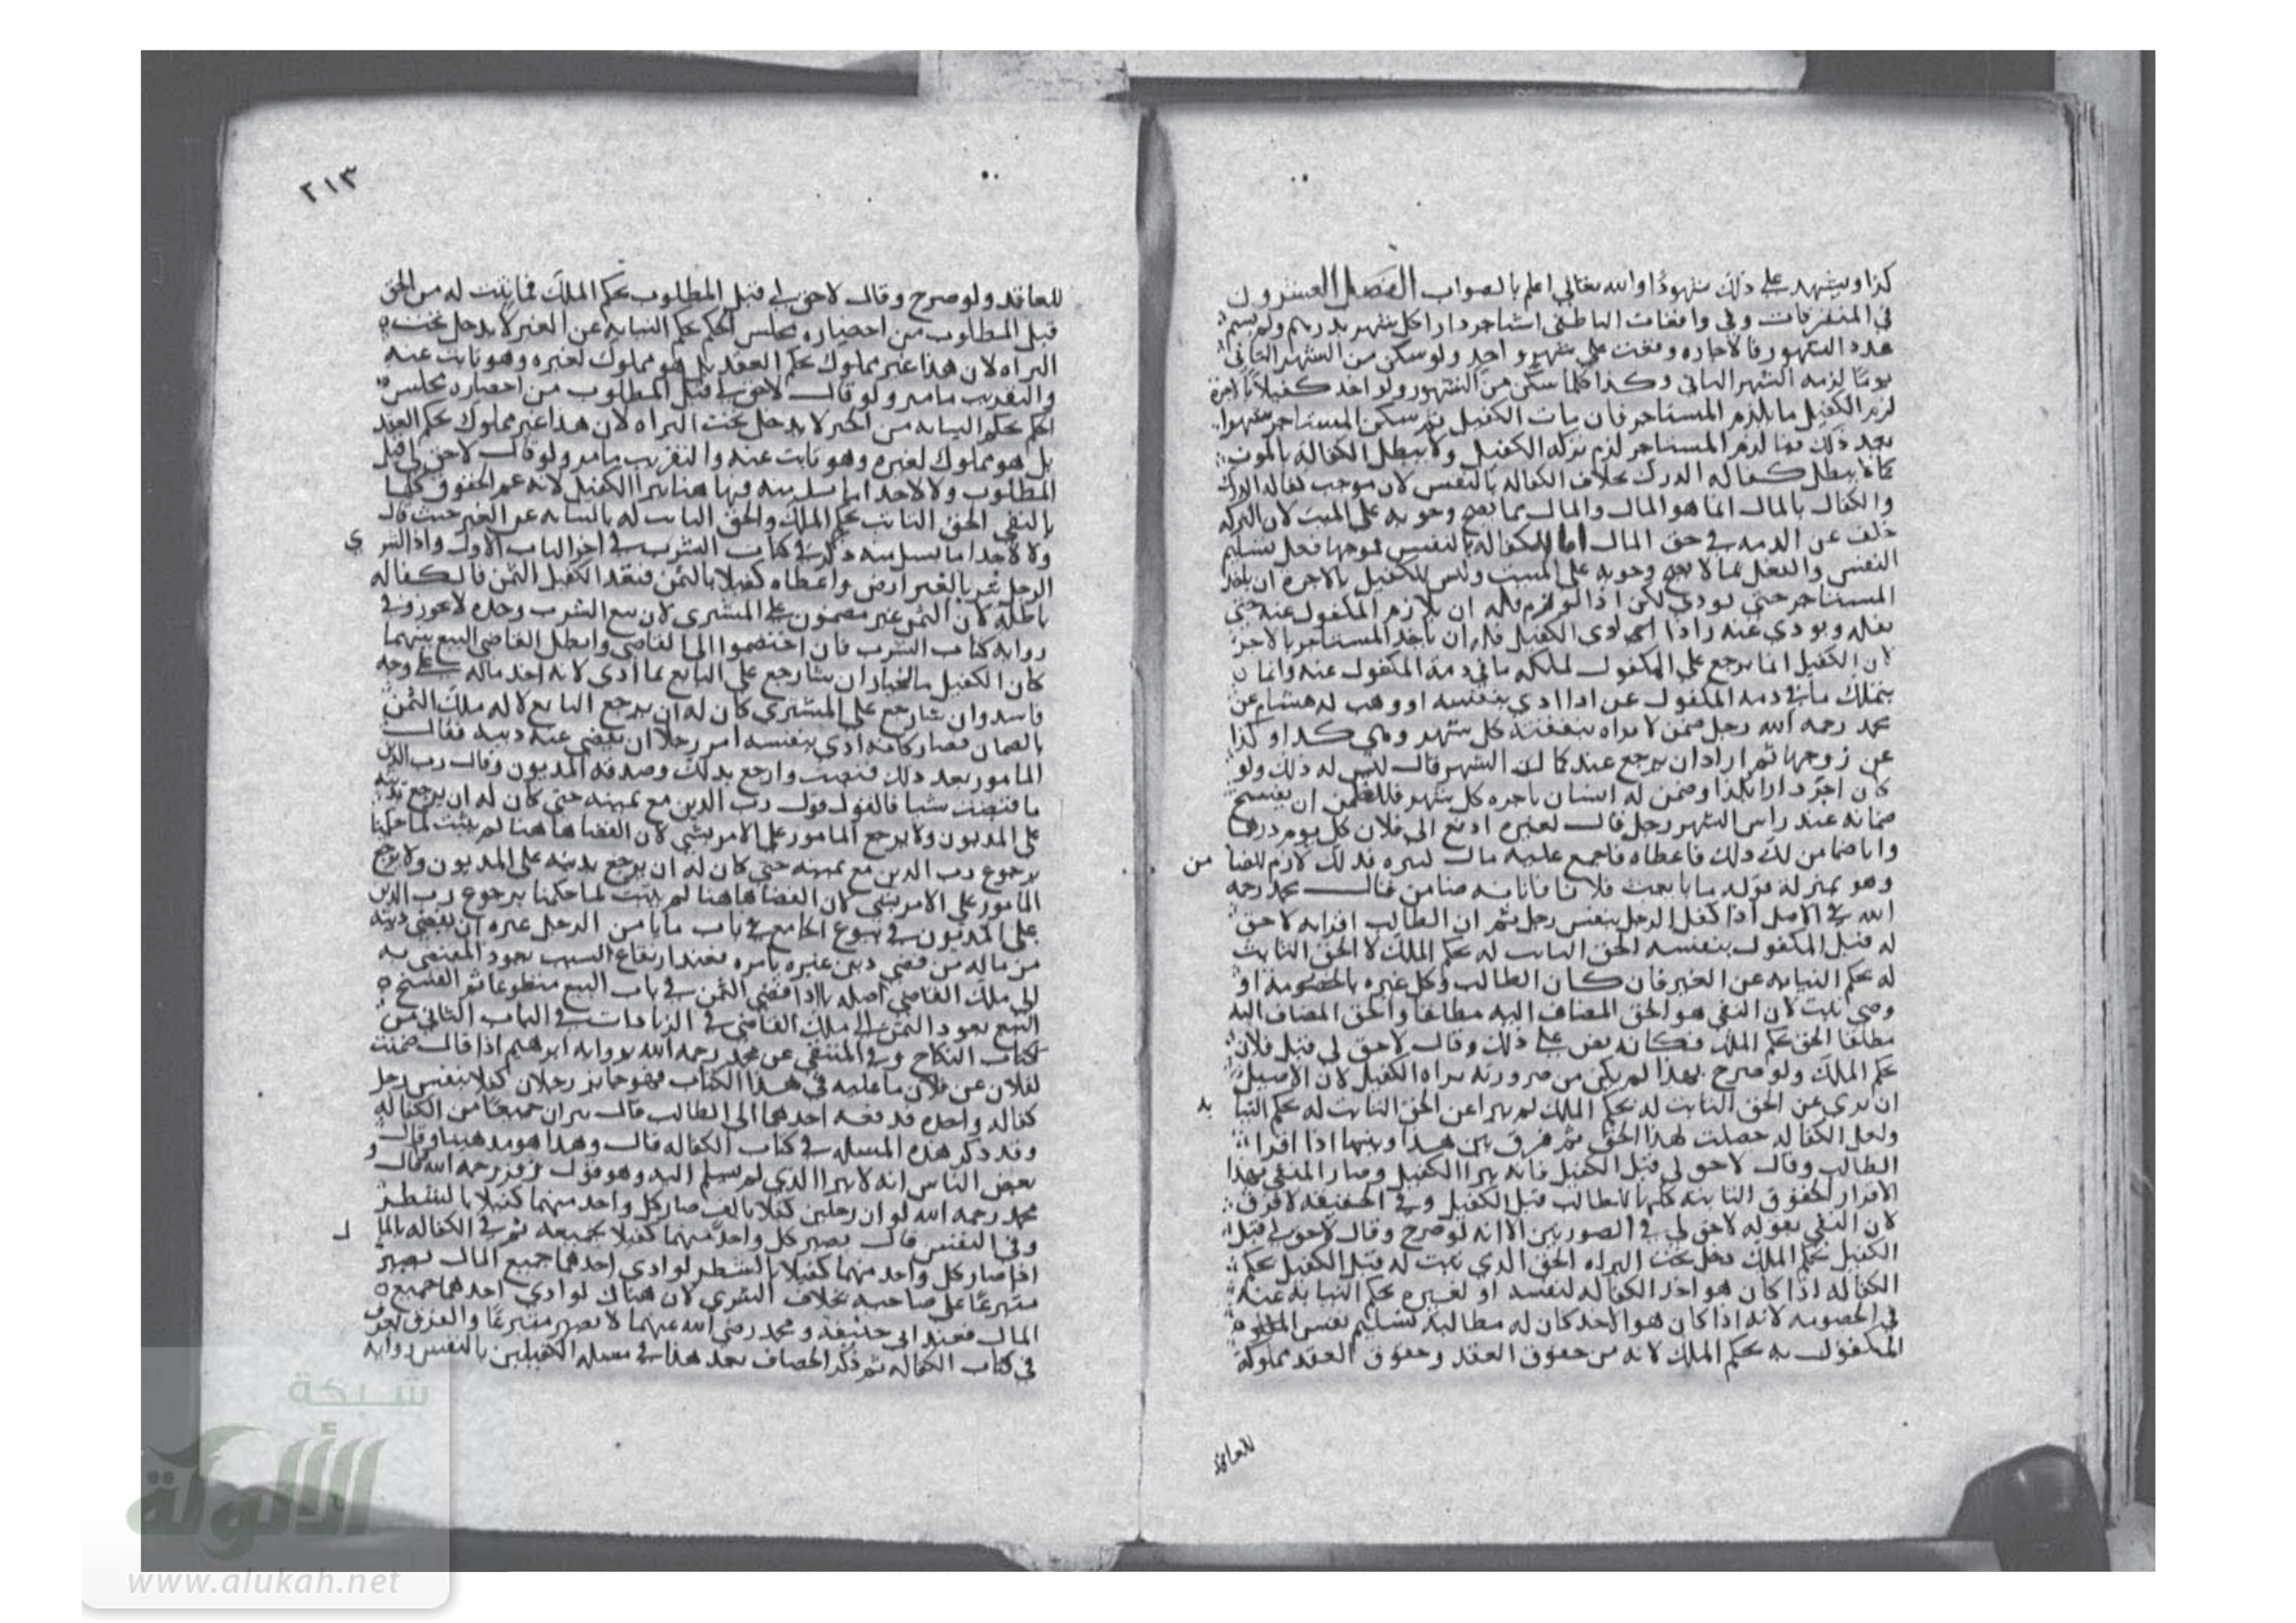 كذا ويشهد على ذلك شهودًا والله تعالى اعلم بالصواب الفصل العشرون
في المتفرقات وفي واقعات الناطفي استاجر دارا كل شهر بدرهم ولم يسم
هذه الشهور فالاجاره وقعت على شهر واحد ولو سكن من الشهر الثاني
يومًا لزمه الشهر الثاني وكذا كلما سكن من الشهور ولو اخذ كفيلا بالاجرة
لزم الكفيل ما يلزم المستاجر فان مات الكفيل ثم سكن المستاجر شهورا
بعد ذلك فما لزم المستاجر لزم تركه الكفيل ولا يبطل الكفاله بالموت
كما لا يبطل كفاله الدرك بخلاف الكفاله بالنفس لان موجب كفاله الدرك
والكفال بالمال انما هو المال والمال مما يصح وجوبه على الميت لان التركه
خلف عن الذمه في حق المال اما الكفاله بالنفس فموجبها فعل تسليم
النفس والفعل مما لا يصح وجوبه على الميت وليس للكفيل بالاجرة ان ياخذ
المستاجر حتى يودي لكن اذا لوزم فله ان يلازم المكفول عنه حتى
يفكه ويودي عنه واذا ادى الكفيل فله ان ياخذ المستاجر بالاجر
لان الكفيل انما يرجع على المكفول لملكه ما في ذمة المكفول عنه وانما
يتملك ما في ذمه المكفول عن اذا ادي بنفسه او وهب له هشام عن
محمد رحمه الله رجل ضمن لامراه بنفقتها كل شهر وهي كذا وكذا
عن زوجها ثم اراد ان يرجع عند كمال الشهر قال ليس له ذلك ولو
كان اجر دارا بكذا وضمن له انسان باجره كل شهر فللضمين ان يفسخ
ضمانه عند راس الشهر رجل قال لغيره ادفع الى فلان كل يوم درهما
وانا ضامن لك ذلك فاعطاه فاجمع عليه مال كثيره فذلك لازم للضا من
وهو بمنزلة قوله ما بايعت فلانا فانا به ضامن قال محمد رحمه
الله في الاصل اذا كفل الرجل بنفس رجل ثم ان الطالب اقر انه لا حق
له قبل المكفول بنفسه الحق الثابت له بحكم الملك لا الحق الثابت
له بحكم النيابه عن الغير فان كان الطالب وكل غيره بالخصومة او
وصي ميت لان النفي هو الحق المضاف اليه مطلقا والحق المضاف اليه
مطلقا الحق بحكم الملك فكانه نص على ذلك وقال لا حق لي قبل فلان
بحكم الملك ولو صرح بهذا لم يكن من ضرورته براه الكفيل لان الاصيل
ان بري عن الحق الثابت له بحكم الملك لم يبرا عن الحق الثابت له بحكم النيا به
ولعل الكفاله حصلت لهذا الحق ثم فرق بين هذا وبينما اذا اقر
الطالب وقال لا حق لي قبل الكفيل فانه يبرا الكفيل وصار المنفي بهذا
الاقرار الحقوق الثابته كلها للطالب قبل الكفيل وفي الحقيقه لا فرق
لان النفي بقوله لا حق لي في الصورتين الا انه لو صرح وقال لا حق لي قبل
الكفيل بحكم الملك دخل تحت البراه الحق الذي ثبت له قبل الكفيل بحكم
الكفاله اذا كان هو اخذ الكفاله لنفسه او لغيره بحكم النيابة عنه
في الخصومه لانه اذا كان هو الاخذ كان له مطالبة تسليم نفس المطلوب
المكفول به بحكم الملك لانه من حقوق العقد وحقوق العقد مملوكة
للعاقد
٢١٣
للعاقد ولو صرح وقال لا حق لي قبل المطلوب بحكم الملك فما يثبت له من الحق
قبل المطلوب من احضاره مجلس الحكم بحكم النيابه عن الغير لا يدخل تحت
البراه لان هذا غير مملوك بحكم العقد بل هو مملوك لغيره وهو نائب عنه
والتقريب ما مر ولو قال لا حق لي قبل المطلوب من احضاره مجلس
الحكم بحكم النيابه من الخير لا يدخل تحت البراه لان هذا غير مملوك بحكم العقد
بل هو مملوك لغيره وهو نائب عنه والتقريب ما مر ولو قال لا حق لي قبل
المطلوب ولا لاحد انا بسبيل منه فيها هنا يبرا الكفيل لانه عم الحقوق كلها
بالنفي الحق الثابت بحكم الملك والحق الثابت له بالنيابه عن الغير حيث قال
ولا لاحد انا بسبيل منه ذكر في كتاب الشرب في اخر الباب الاول واذا اشتر ي
الرجل شرب بالغير ارض واعطاه كفيلا بالثمن فنقد الكفيل الثمن فالكفاله
باطله لان الثمن غير مضمون على المشتري لان بيع الشرب وحده لا يجوز وفي
روايه كتاب الشرب فان اختصموا الى القاضي وابطل القاضي البيع بينهما
كان الكفيل بالخيار ان شا رجع على البايع بما ادى لانه اخذ ماله على وجه
فاسد وان شا رجع على المشتري كان له ان يرجع البايع لانه ملك الثمن
بالضمان فصار كانه ادي بنفسه امر رجلا ان يقضي عنه دينه فقال
المامور بعد ذلك قضيت وارجع بذلك وصدقه المديون وقال رب الدين
ما قبضت شيا فالقول قول رب الدين مع يمينه حتى كان له ان يرجع بدينه
على المديون ولا يرجع المامور على الامر بشي لان القضا هاهنا لم يثبت لما حكمنا
برجوع رب الدين مع يمينه حتى كان له ان يرجع بدينه على المديون ولا يرجع
المامور على الامر بشي لان القضا هاهنا لم يثبت لما حكمنا برجوع رب الدين
على المديون في بيوع الجامع في باب ما يامر الرجل غيره ان يقضي دينه
من ماله من قضى دين غيره بامره فعند ارتفاع السبب يعود المقضي به
الى ملك القاضي اصله اذا قضى الثمن في باب البيع متطوعا ثم انفسخ
البيع يعود الثمن الى ملك القاضي في الزيادات في الباب الثاني من
كتاب النكاح وفي المنتقى عن محمد رحمه الله بروايه ابرهيم اذا قال ضمنت
لفلان عن فلان ما عليه في هذا الكتاب فهو جايز رجلان كفلا بنفس رجل
كفاله واحده فدفعه احدهما الى الطالب قال يبران جميعًا من الكفاله
وقد ذكر هذه المسله في كتاب الكفاله قال وهذا هو مذهبنا وقال
بعض الناس انه لا يبرا الذي لم يسلم اليه وهو قول زفر رحمه الله قال و
محمد رحمه الله لو ان رجلين كفلا بالف صار كل واحد منهما كفيلا بالشطر
وفي النفس قال يصير كل واحد منهما كفيلا بجميعه ثم في الكفاله بالما ل
اذا صار كل واحد منهما كفيلا بالشطر لو ادى احدهما جميع المال يصير
متبرعًا على صاحبه بخلاف الشري لان هناك لو ادي احدهما جميع
المال فعند ابي حنيفة ومحمد رضي الله عنهما لا يصير متبرعًا والفرق يعرف
في كتاب الكفاله ثم ذكر الخصاف بعد هذا في مسله الكفيلين بالنفس روايه
شبكة
الألوكة
www.alukah.net